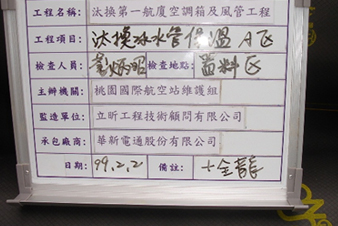 工程名稱: 汰換第一航廈空調箱及風管工程
工程項目: 汰換冰水管保溫 A區
檢查人員: 檢查地點: 備料區
主辦機關: 桃園國際航空站維護組
監造單位: 立昕工程技術顧問有限公司
承包廠商: 華新電通股份有限公司
日期: 99.2.2 備註: